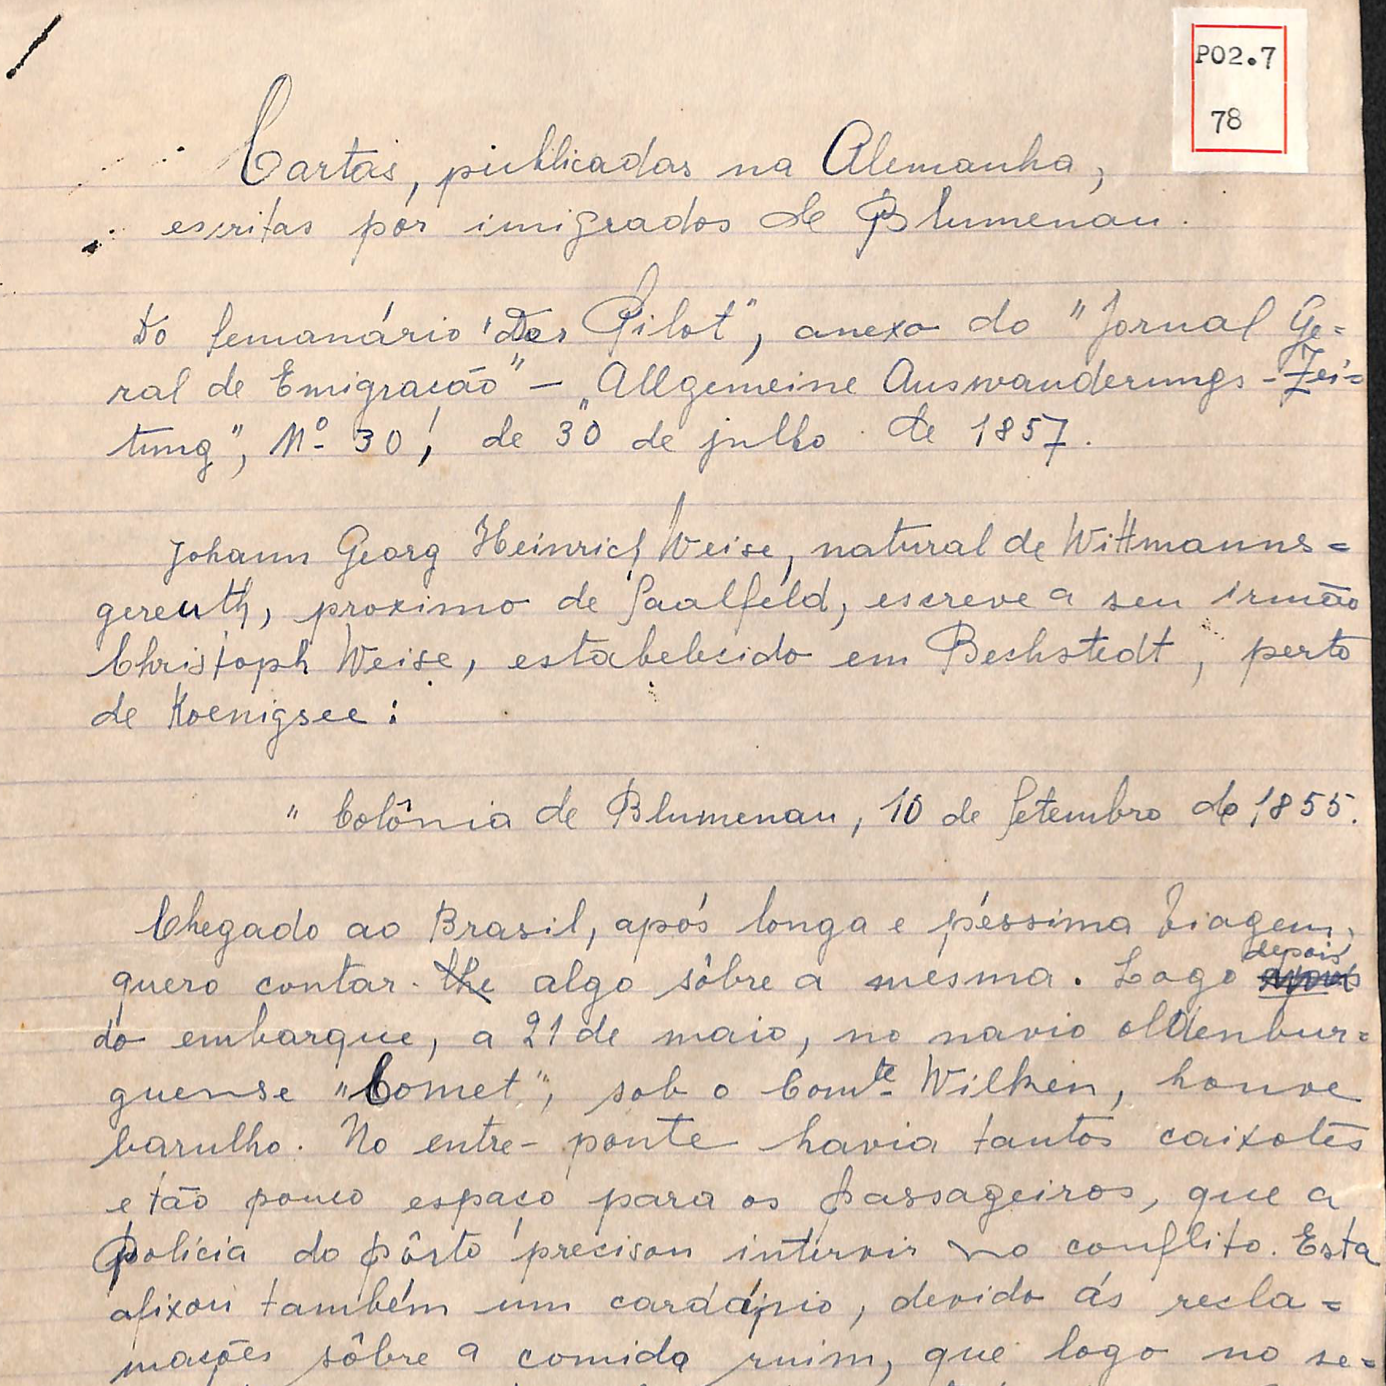 PO2.7
78
Cartas, publicadas na Alemanha,
escritas por imigrados de Blumenau.
Do Semanário "Der Pilot", anexo do "Jornal Ge=
ral de Emigração" – "Allgemeine Auswanderungs-Zei=
tung", Nº 30, de 30 de julho de 1857.
Johann Georg Heinrich Weise, natural de Wittmanns=
gereuth, proximo de Saalfeld, escreve a seu irmão
Christoph Weise, estabelecido em Bechstedt, perto
de Koenigsee:
"Colônia de Blumenau, 10 de Setembro de 1855.
Chegado ao Brasil, após longa e péssima viagem,
quero contar-lhe algo sôbre a mesma. Logo depois
do embarque, a 21 de maio, no navio oldenbur=
guense "Comet", sob o Comte Wilken, houve
barulho. No entre-ponte havia tantos caixotes
e tão pouco espaço para os passageiros, que a
Polícia do pôrto precisou intervir no conflito. Esta
afixou também um cardápio, devido ás recla=
mações sôbre a comida ruim, que logo no se=